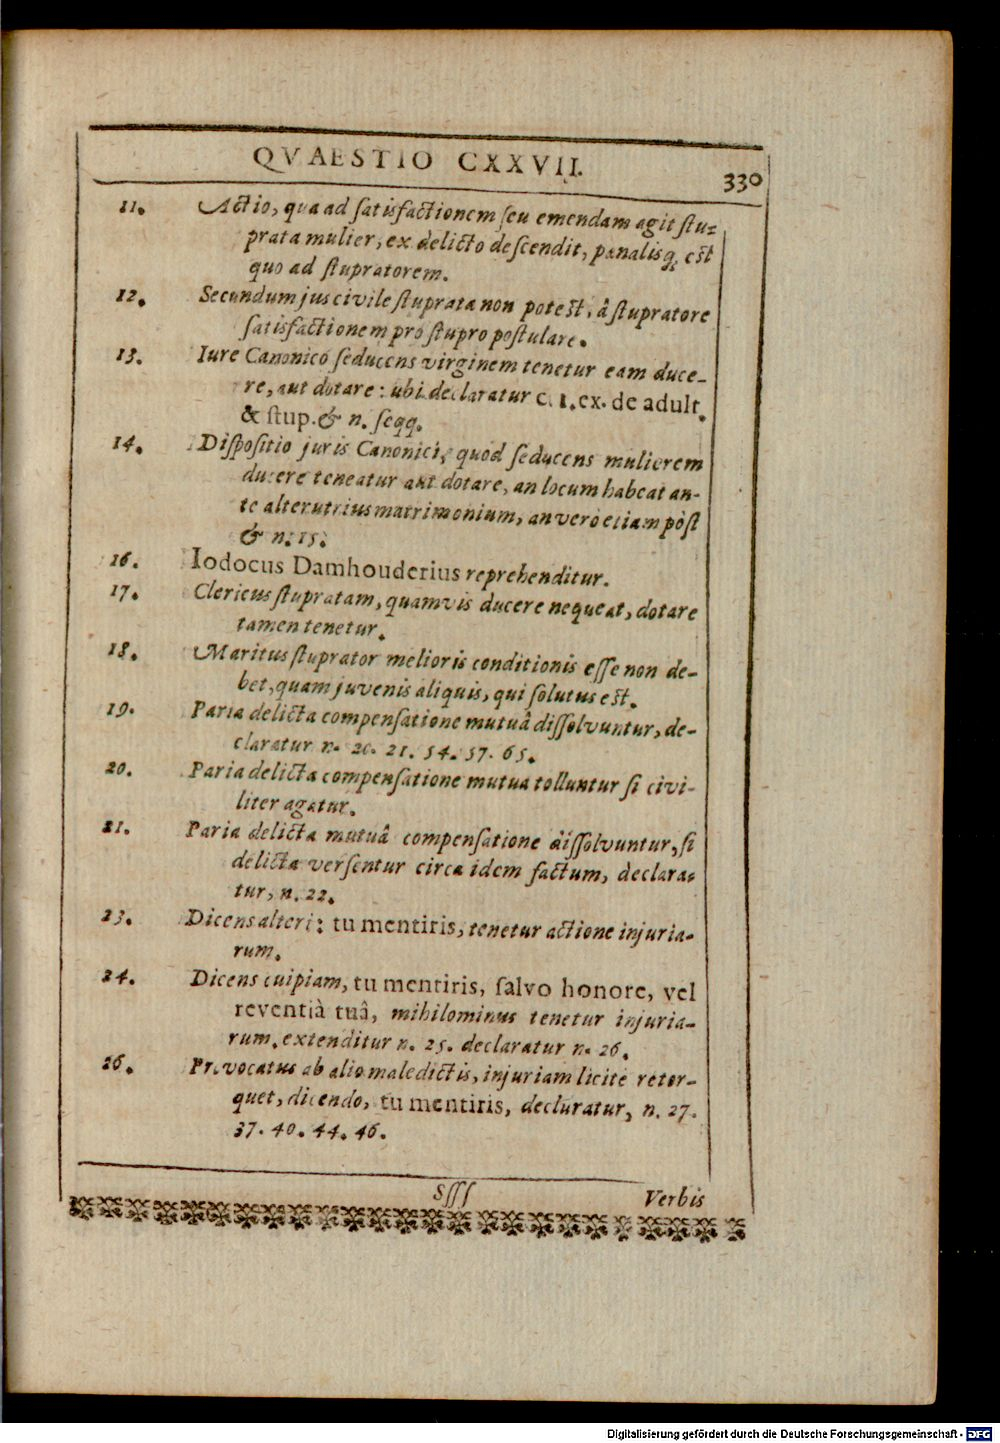 QVAESTIO CXXVII.
330
11. Actio, qua ad ſatisfactionem ſeu emendam agit ſtu-
prata mulier, ex delicto deſcendit, pœnalisq́; eſt
quo ad ſtupratorem.
12. Secundum jus civile ſtuprata non poteſt, â ſtupratore
ſatisfactionem pro ſtupro poſtulare.
13. Iure Canonico ſeducens virginem tenetur eam duce-
re, aut dotare: ubi declaratur c. 1. ex. de adult.
& ſtup. & n. ſeqq.
14. Diſpoſitio juris Canonici, quod ſeducens mulierem
ducere teneatur aut dotare, an locum habeat an-
te alterutrius matrimonium, an vero etiam pòſt
& n. 15.
16. Iodocus Damhouderius reprehenditur.
17. Clericus ſtupratam, quamvis ducere nequeat, dotare
tamen tenetur.
18. Maritus ſtuprator melioris conditionis eſſe non de-
bet, quam juvenis aliquis, qui ſolutus eſt.
19. Paria delicta compenſatione mutuâ diſſolvuntur, de-
claratur n. 20. 21. 54. 57. 65.
20. Paria delicta compenſatione mutua tolluntur ſi civi-
liter agatur.
21. Paria delicta mutuâ compenſatione diſſolvuntur, ſi
delicta verſentur circa idem factum, declara-
tur, n. 22.
23. Dicens alteri: tu mentiris, tenetur actione injuria-
rum.
24. Dicens cuipiam, tu mentiris, ſalvo honore, vel
reventià tuâ, mihilominus tenetur injuria-
rum, extenditur n. 25. declaratur n. 26.
26. Provocatus ab alio maledictis, injuriam licitè retor-
quet, dicendo, tu mentiris, decluratur, n. 27.
37. 40. 44. 46.
Sſſſ
Verbis
Digitalisierung gefördert durch die Deutsche Forschungsgemeinschaft - DFG